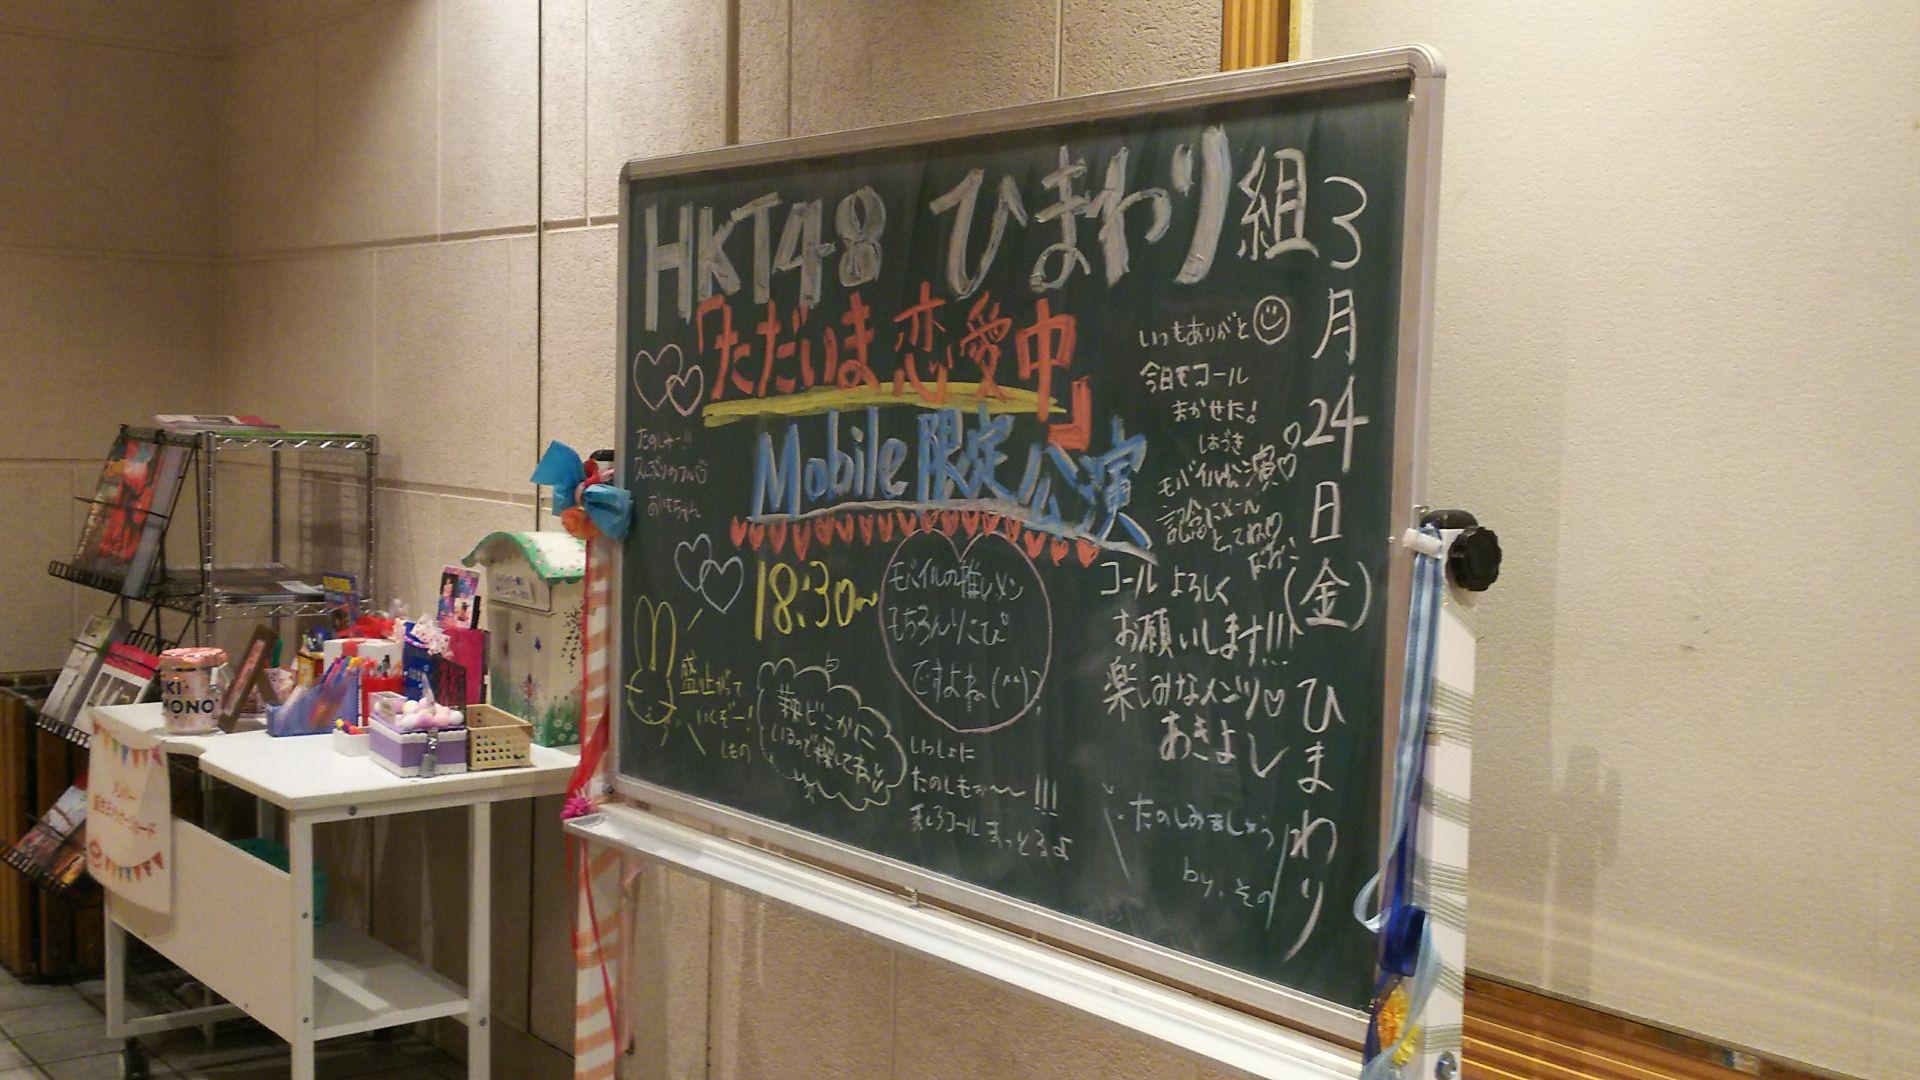 HKT48 ひまわり組
「ただいま恋愛中」
Mobile限定公演
18:30~
3月24日(金)ひまわり
いつもありがと
今日もコール
まかせた!
モバイル公演♡
記念にメール
とってね♡
なお
コール よろしく
お願いします!!!
楽しみなメンツ♡
あきよし
たのしみましょう
by. その
モバイルの推しメン
もちろんりこぴ
ですよね(^^)?
盛上がって
いくぞー!
しもの
どこかに
いるので探してネ
いっしょに
たのしもか~~!!!
ましろコールまっとるよ
たのしみー!!
おいもちゃん
KIMONO
メンバー